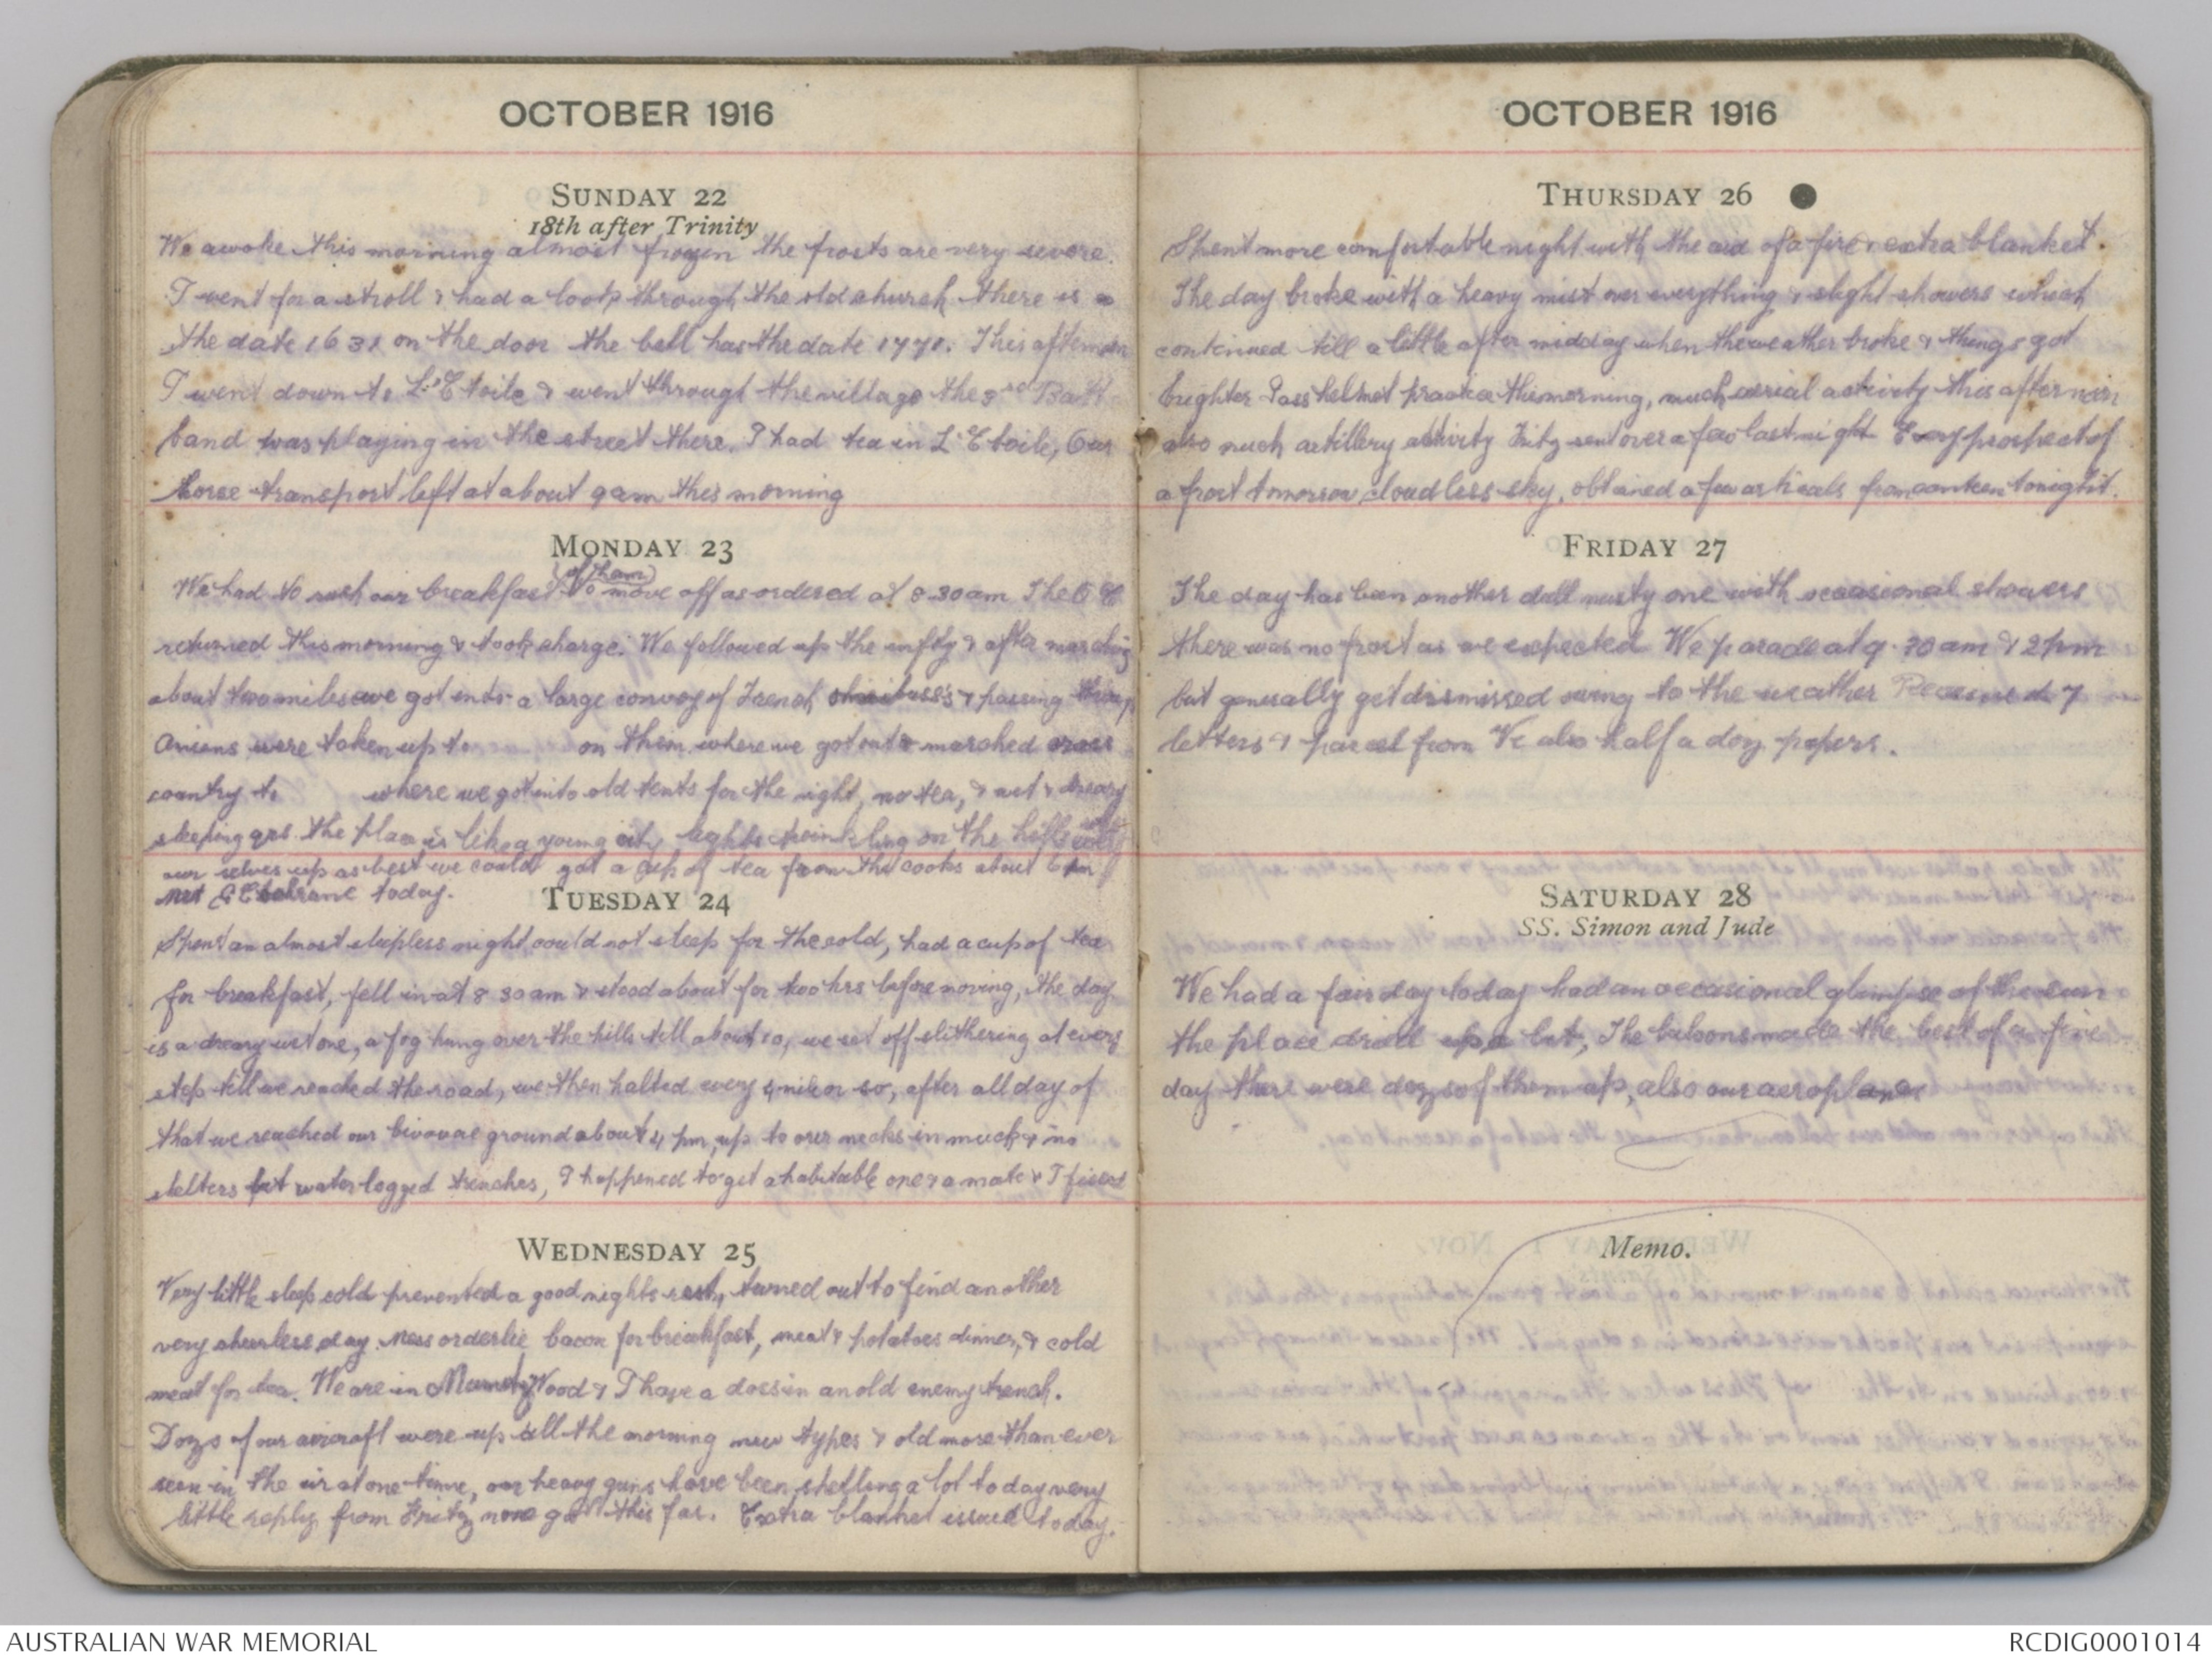 OCTOBER 1916
SUNDAY 22
18th after Trinity
We awoke this morning almost frozen the frosts are very severe.
I went for a stroll & had a look through the old church there is
the date 1631 on the door the bell has the date 1771. This afternoon
I went down to L'Etoile & went through the village the 3rd Batt
band was playing in the street there. I had tea in L'Etoile, Our
horse transport left at about 9am this morning
MONDAY 23
(of ham)
We had to rush our breakfast to move off as ordered at 8.30am The
returned this morning & took charge. We followed up the inftry & after marching
about two miles we got into a large convoy of French & passing throug
Amiens were taken up to on them where we got out & marched cross
country to where we got into old tents for the night, no tea, & wet & dreary
sleeping qrs the place is like a young city lights twinkling on the hills
our selves up as best we could got a cup of tea from the cooks about 6 pm
met today.
TUESDAY 24
Spent an almost sleepless night could not sleep for the cold, had a cup of tea
for breakfast, fell in at 8 30am & stood about for two hrs before moving, the day
is a dreary wet one, a fog hung over the hills till about 10, we set off slithering at every
step till we reached the road, we then halted every ¼ mile or so, after all day of
that we reached our bivouac ground about 4 pm, up to our necks in muck & no
shelters but water logged trenches, I happened to get a habitable one & a mate & I fixed
WEDNESDAY 25
Very little sleep cold prevented a good nights rest, turned out to find another
very cheerless day. Mess orderlie bacon for breakfast, meat & potatoes dinner, & cold
meat for tea. We are in Wood & I have a doss in an old enemy trench.
Dozs of our aircraft were up all the morning new types & old more than ever
seen in the air at one time, our heavy guns have been shelling a lot today very
little reply from Fritz none got this far. Extra blanket issued today.
OCTOBER 1916
THURSDAY 26
Spent more comfortable night with the aid of a fire & extra blanket.
The day broke with a heavy mist over everything & slight showers which
continued till a little after midday when the weather broke & things got
brighter Gass helmet practice this morning, much aerial activity this afternoon
also much artillery activity Fritz sent over a few last night Every prospect of
a frost tomorrow cloudless sky, obtained a few articals from canteen tonight.
FRIDAY 27
The day has been another dull misty one with occasional showers
there was no frost as we expected. We parade at 9.30 am & 2 pm
but generally get dismissed owing to the weather Received 7
letters & parcel from Vc also half a doz papers.
SATURDAY 28
SS. Simon and Jude
We had a fair day today had an occasional glimpse of the sun
the place dried up a bit, The baloons made the best of a fine
day there were dozs of them up, also our aeroplanes
Memo.
AUSTRALIAN WAR MEMORIAL
RCDIG0001014